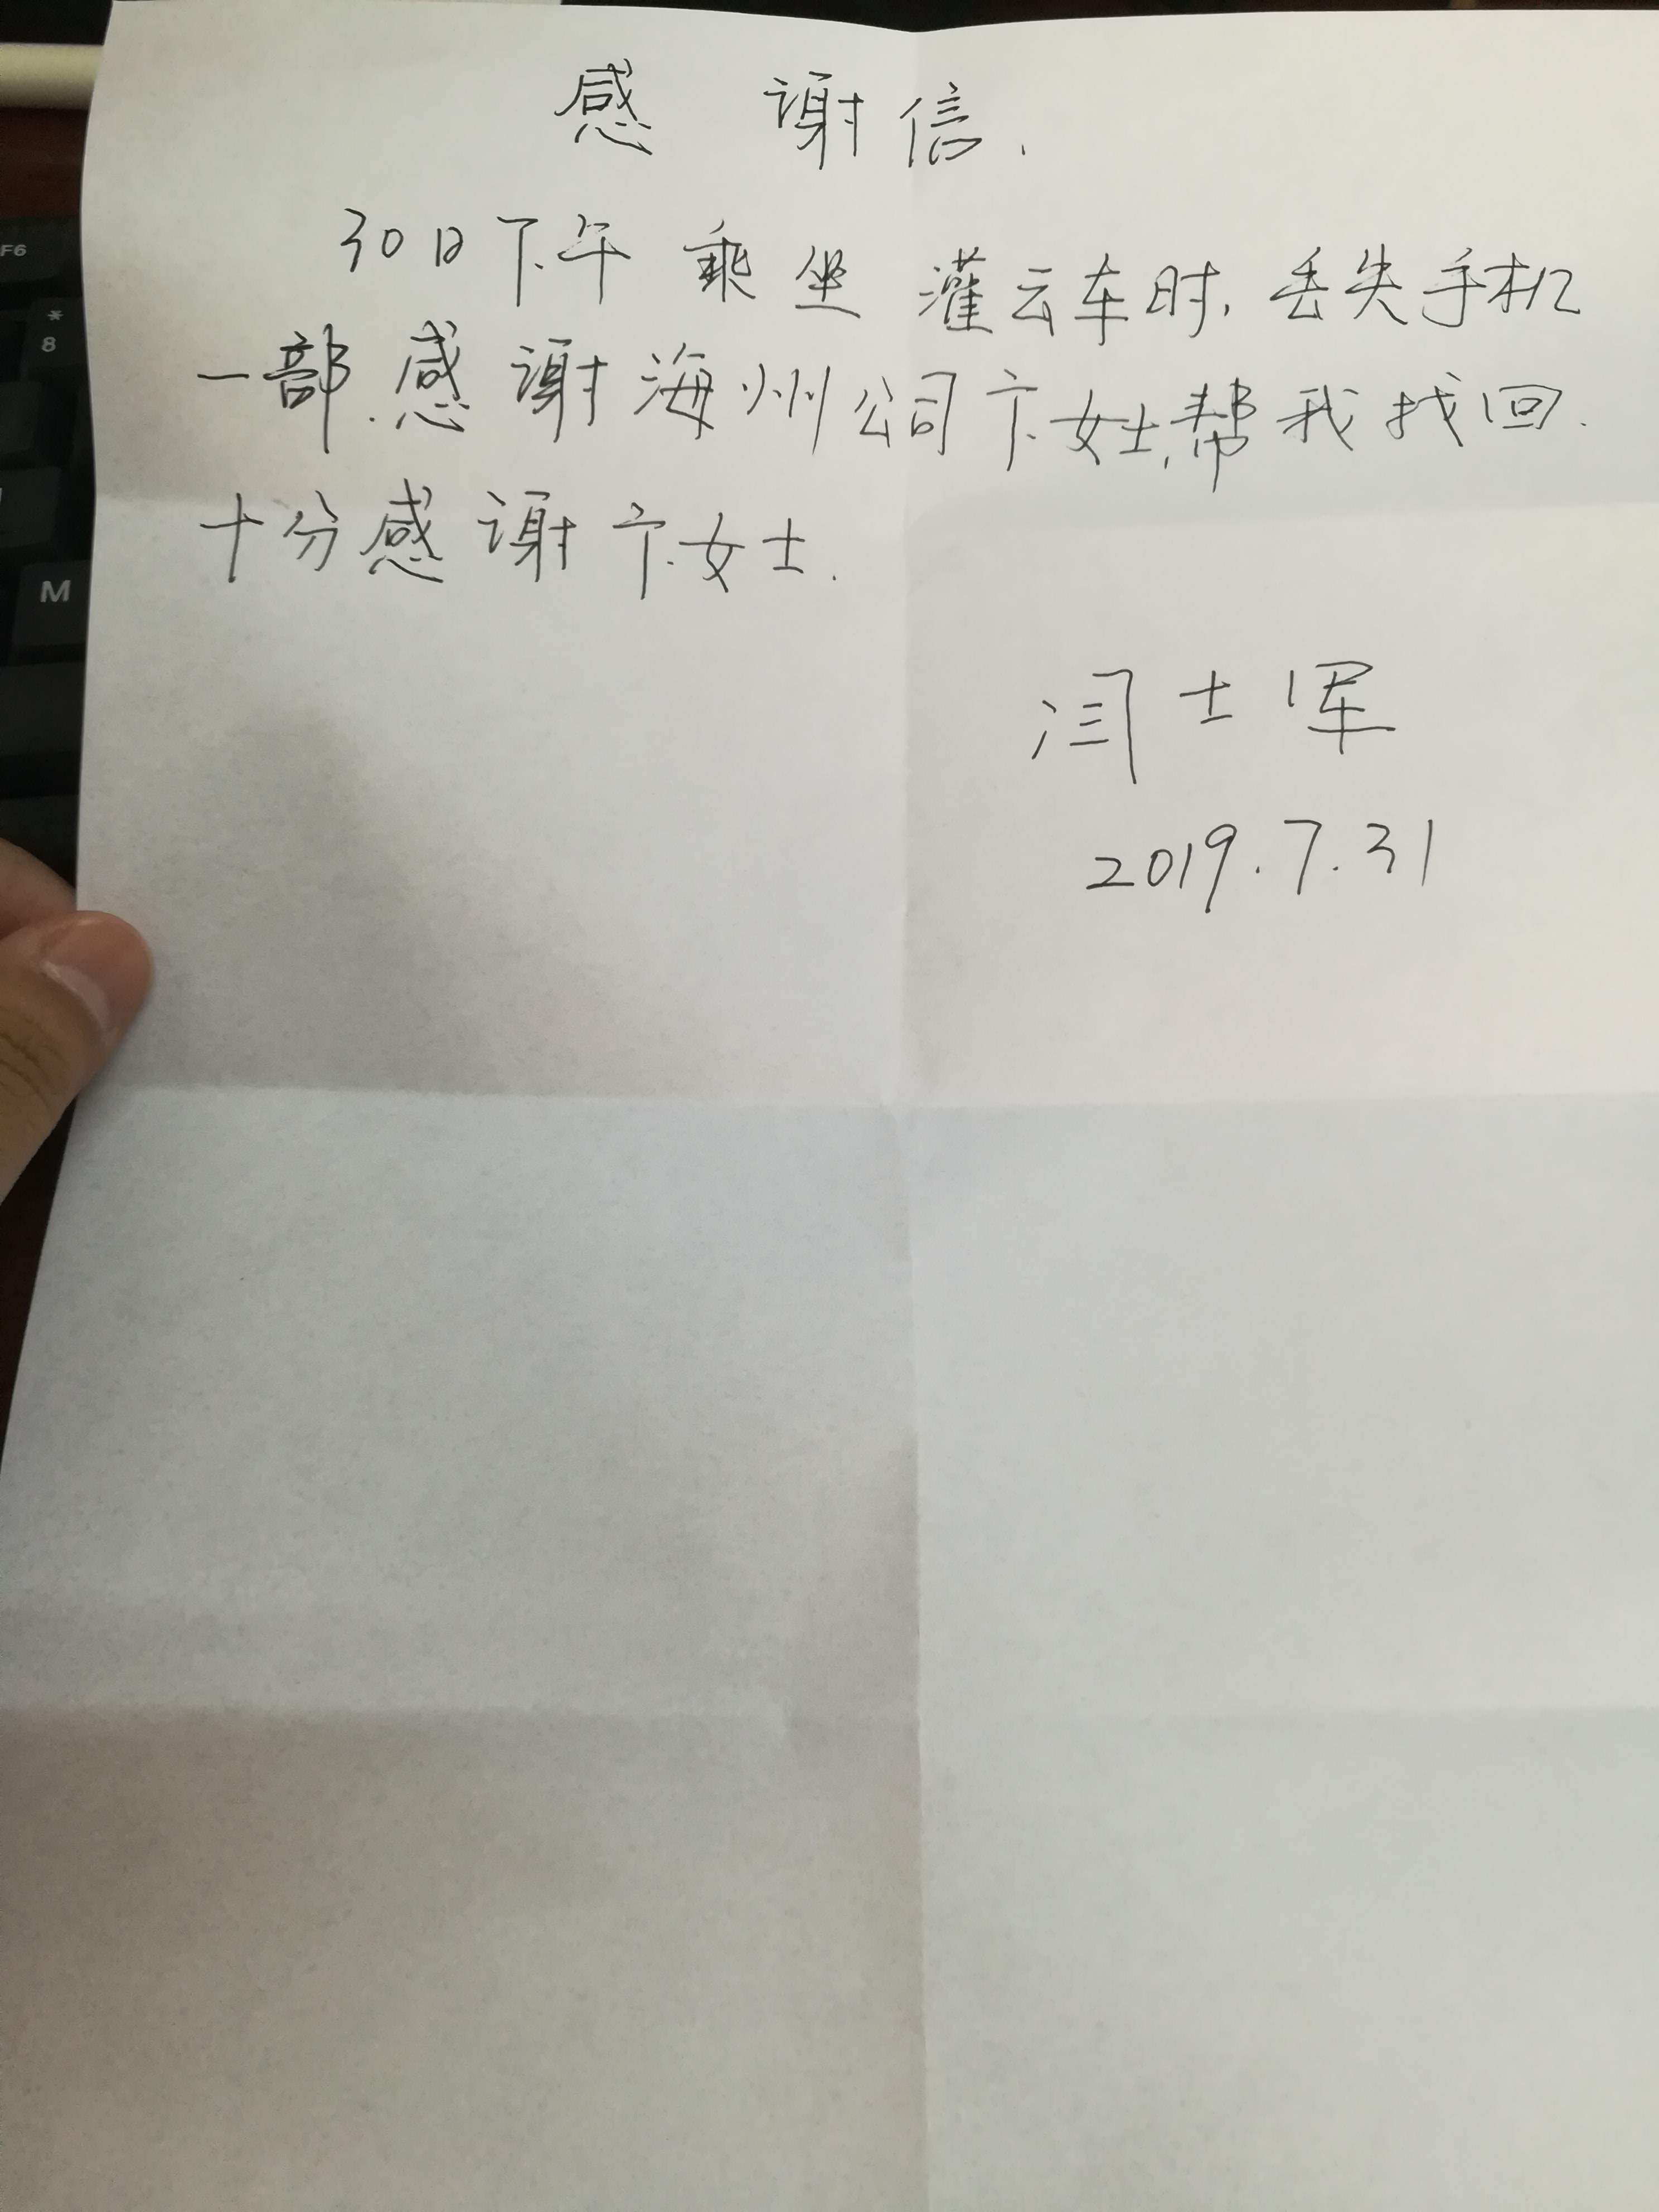 感谢信.
30日下午乘坐灌云车时,丢失手机
一部.感谢海州公司卞女士,帮我找回.
十分感谢卞女士.
闫士军
2019.7.31
F6
*
8
M